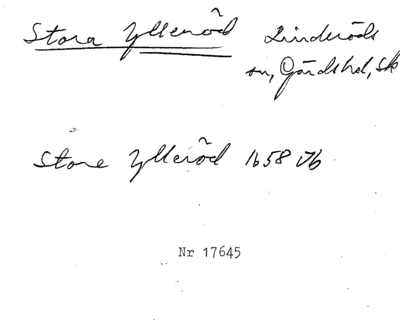 Stora Ylleröd Linderöds
sn, Gärds hd, Sk
Store Ylleröd 1658 Jb
Nr 17645